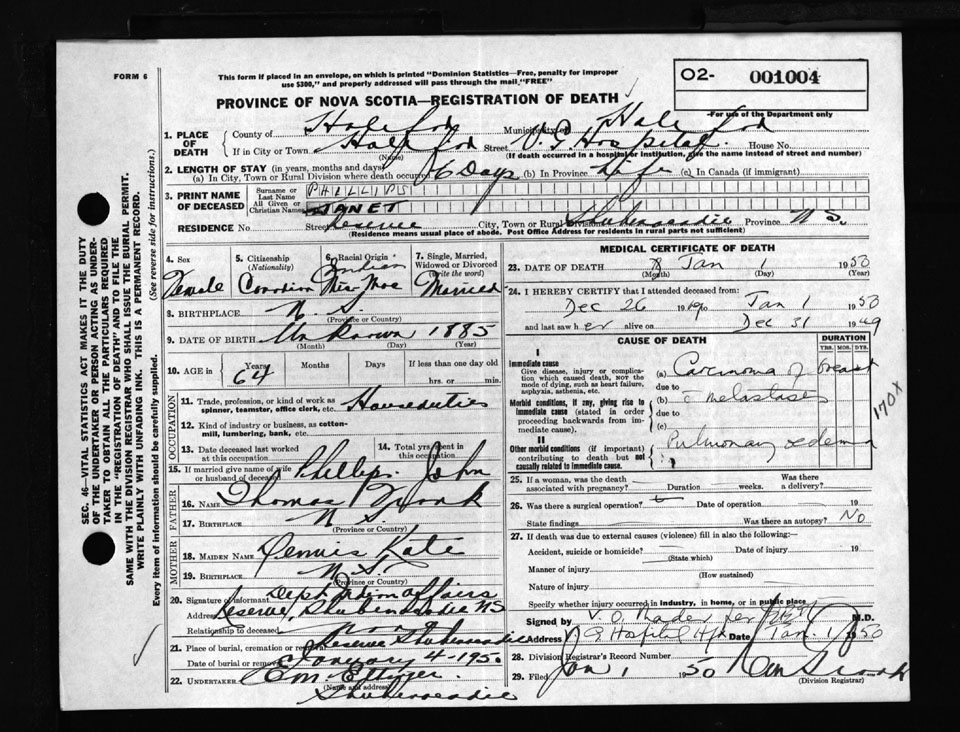 FORM 6
This form if placed in an envelope, on which is printed "Dominion Statistics—Free, penalty for improper
use $300," and properly addressed will pass through the mail "FREE"
O2- 001004
For use of the Department only
PROVINCE OF NOVA SCOTIA—REGISTRATION OF DEATH
1. PLACE OF DEATH
County of Halifax Municipality of Halifax
If in City or Town Halifax Street V. G. Hospital House No.
(Name) (If death occurred in a hospital or institution, give the name instead of street and number)
2. LENGTH OF STAY (in years, months and days)
(a) In City, Town or Rural Division where death occurred 6 Days (b) In Province Life (c) In Canada (if immigrant)
3. PRINT NAME OF DECEASED
Surname or Last Name PHILLIPS
All Given or Christian Names JANET
RESIDENCE No. Street Reserve City, Town or Rural Division Shubenacadie Province N S.
(Residence means usual place of abode. Post Office Address for residents in rural parts not sufficient)
4. Sex Female
5. Citizenship (Nationality) Canadian
6. Racial Origin Indian Mic Mac
7. Single, Married, Widowed or Divorced (write the word) Married
8. BIRTHPLACE N. S.
(Province or Country)
9. DATE OF BIRTH Unknown 1885
(Month) (Day) (Year)
10. AGE in Years 64 Months Days If less than one day old
hrs. or min.
OCCUPATION
11. Trade, profession, or kind of work as spinner, teamster, office clerk, etc. Houseduties
12. Kind of industry or business, as cotton-mill, lumbering, bank, etc.
13. Date deceased last worked at this occupation
14. Total yrs. spent in this occupation
15. If married give name of wife or husband of deceased Phillips John
FATHER
16. NAME Thomas
17. BIRTHPLACE N S.
(Province or Country)
MOTHER
18. MAIDEN NAME Kate
19. BIRTHPLACE N. S.
(Province or Country)
20. Signature of informant Dept Indian Affairs
Address Reserve, Shubenacadie NS
Relationship to deceased
21. Place of burial, cremation or removal Reserve Shubenacadie
Date of burial or removal January 4-1950
22. UNDERTAKER Em. Ettinger
(Name and address)
Shubenacadie
MEDICAL CERTIFICATE OF DEATH
23. DATE OF DEATH Jan 1 1950
(Month) (Day) (Year)
24. I HEREBY CERTIFY that I attended deceased from:
Dec 26 1949 to Jan 1 1950
and last saw her alive on Dec 31 1949
CAUSE OF DEATH
DURATION
YRS. MOS. DYS.
I
Immediate cause
Give disease, injury or complication which caused death, NOT the mode of dying, such as heart failure, asphyxia, asthenia, etc.
(a) Carcinoma of breast
due to
Morbid conditions, if any, giving rise to immediate cause (stated in order proceeding backwards from immediate cause).
(b) c metastases
due to
(c)
II
Other morbid conditions (if important) contributing to death but not causally related to immediate cause.
Pulmonary edema
170X
25. If a woman, was the death associated with pregnancy? Duration weeks. Was there a delivery?
26. Was there a surgical operation? Date of operation 19
State findings Was there an autopsy? No
27. If death was due to external causes (violence) fill in also the following:—
Accident, suicide or homicide? Date of injury 19
(State which)
Manner of injury
(How sustained)
Nature of injury
Specify whether injury occurred in industry, in home, or in public place
Signed by V. O. Mader M.D.
Address V G Hospital Hfx Date Jan. 1 1950
28. Division Registrar's Record Number
29. Filed Jan 1 1950
(Division Registrar)
SEC. 46—VITAL STATISTICS ACT MAKES IT THE DUTY
OF THE UNDERTAKER OR PERSON ACTING AS UNDERTAKER TO OBTAIN ALL THE PARTICULARS REQUIRED
IN THE "REGISTRATION OF DEATH" AND TO FILE THE
SAME WITH THE DIVISION REGISTRAR WHO SHALL ISSUE THE BURIAL PERMIT.
WRITE PLAINLY WITH UNFADING INK. THIS IS A PERMANENT RECORD.
Every item of information should be carefully supplied. (See reverse side for instructions.)